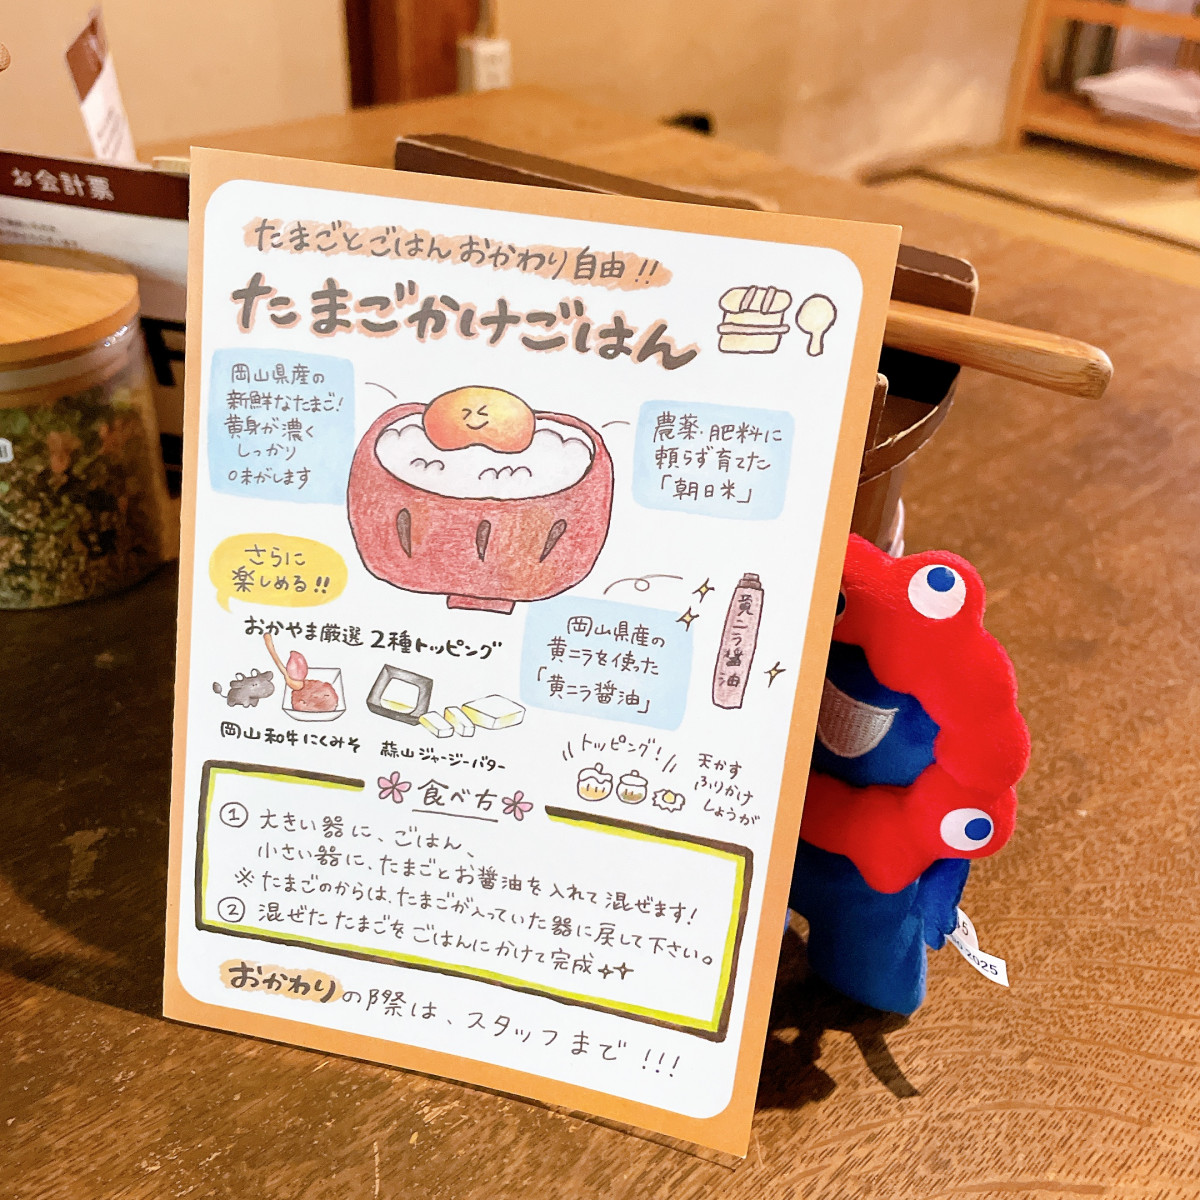 お会計票
たまごとごはんおかわり自由!!
たまごかけごはん
岡山県産の
新鮮なたまご!
黄身が濃く
しっかり
味がします
農薬・肥料に
頼らず育てた
「朝日米」
さらに
楽しめる!!
おかやま厳選2種トッピング
岡山和牛にくみそ
蒜山ジャージーバター
岡山県産の
黄ニラを使った
「黄ニラ醤油」
黄ニラ醤油
トッピング!
天かす
ふりかけ
しょうが
食べ方
① 大きい器に、ごはん、
小さい器に、たまごとお醤油を入れて混ぜます!
※たまごのからは、たまごが入っていた器に戻して下さい。
② 混ぜたたまごをごはんにかけて完成
おかわりの際は、スタッフまで!!!
2025